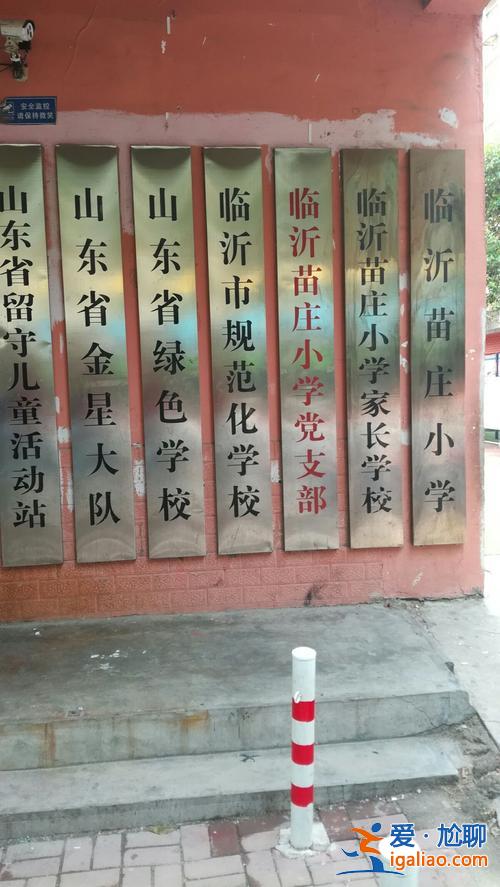 安全监控
请保持微笑
山东省留守儿童活动站
山东省金星大队
山东省绿色学校
临沂市规范化学校
临沂苗庄小学党支部
临沂苗庄小学家长学校
临沂苗庄小学
爱·尬聊
igaliao.com